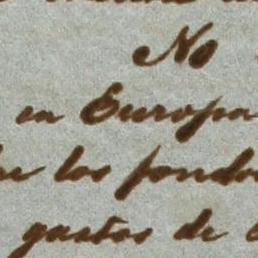 No
en Europa
los fondo
gastos de